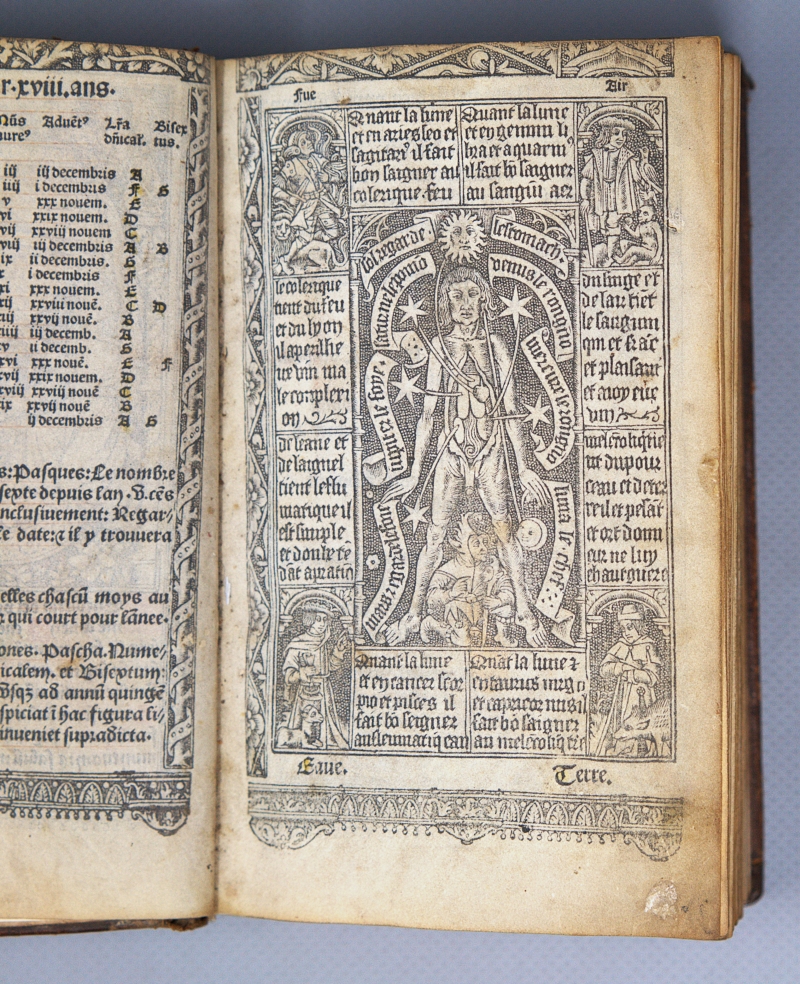 r.xviii.ans.
Nũs Aduẽtꝰ Lr̃a Bisex
nureꝰ dñical'. tus.
iij iij decembris A
iiij i decembris F G
v xxx nouem. E
vi xxix nouem. D
vij xxviij nouem C
viij iij decembris A B
ix ij decembris. G
x i decembris F
xi xxx nouem. E
xij xxviii nouẽ. C D
xxvij nouẽ. B
iiij iij decemb. A
xv ii decemb. G
xvi xxx nouẽ. E F
xvij xxix nouem. D
xviij xxviij nouẽ C
ix xxvij nouẽ B
ij decembris A G
s: Pasques: Le nombre
sexte depuis lan .B. cẽs
nclusiuement: Regar/
le date: ⁊ il y trouuera
elles chascũ moys au
qui court pour lãnee.
ones. Pascha. Nume/
icalem. et Bisextum:
vsqȝ ad annũ quingẽ
spiciat ĩ hac figura li/
inueniet supradicta.
Fue Air
Quant la lune
et en aries leo et
sagitarꝰ il fait
bon saigner au
colerique. feu
Quant la lune
et en gemini li
bra et aquarii
il fait bõ saigner
au sangui aer
sol regarde lestomach.
saturne le pomo
venus le rongno
mercure le rongno
iupiter le foye.
luna le chef:
le colerique
tient du feu
et du lyon
il aperilhe
ue vin ma
le complexi
on
du singe et
de lair tiet
le sanguin
et plaisant
et auoy eux
vin
de leaue et
de laignel
tient le flu
matique il
est simple
et doulx
du pour
ceau et de ter
reil et pesãt
et ort domi
eur ne luy
chaut guere
Quant la lune
et en cancer scor
pio et pisces il
fait bõ seigner
au fleumatiq eau
Quãt la lune ⁊
en taurus virgo
et capricor nus il
fait bõ saigner
au melẽcoliq tre
Eaue. Terre.